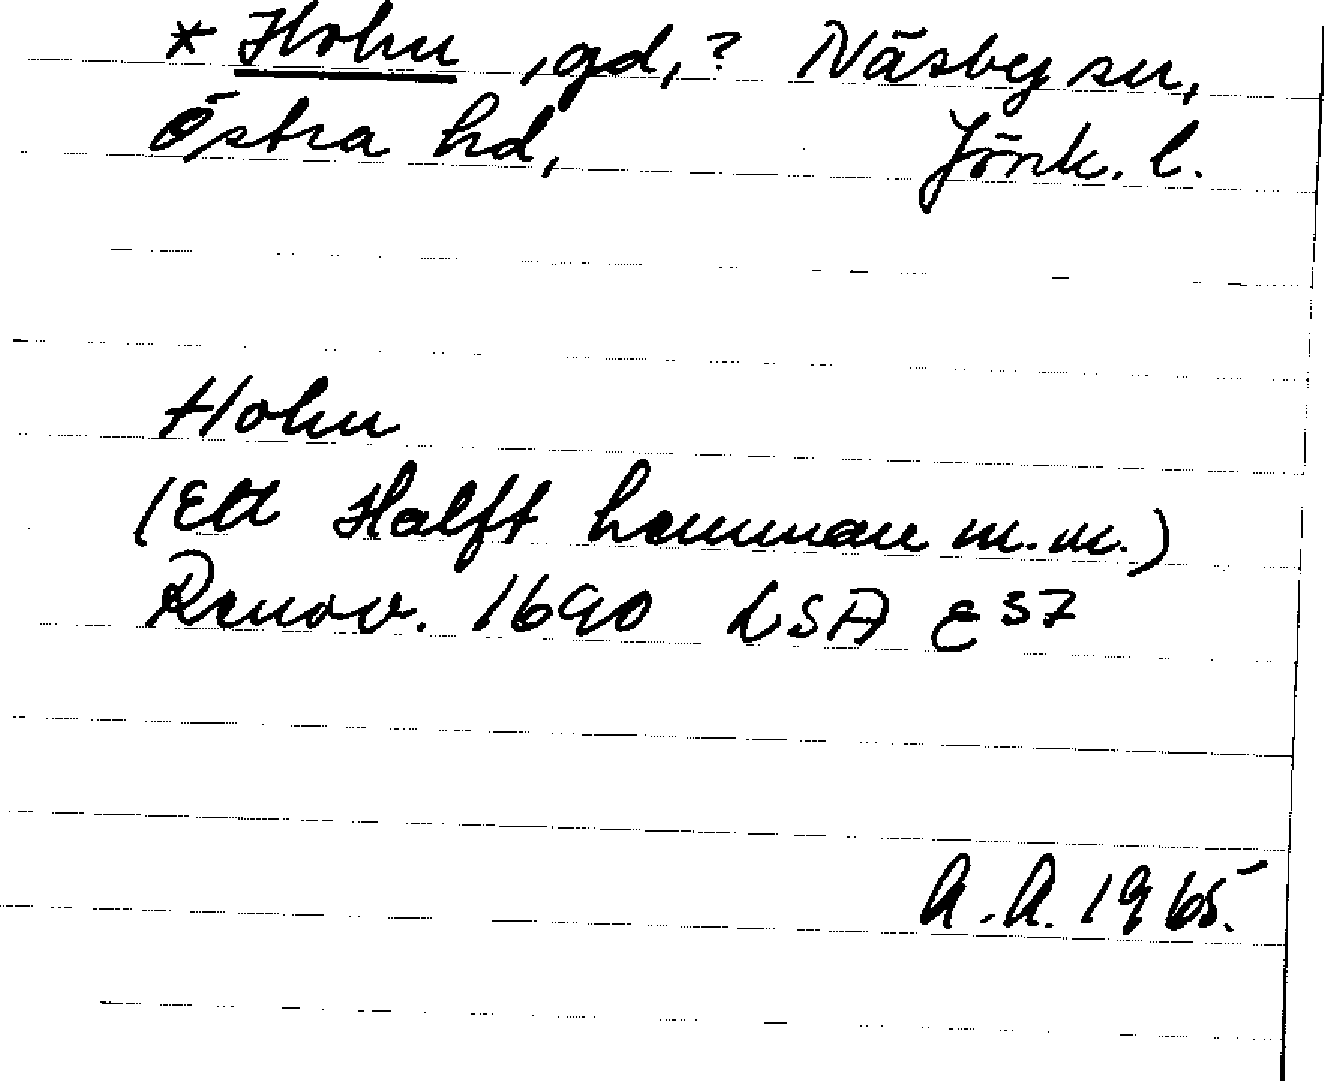 * Hohu, gd, ? Näsby sn,
Östra hd, Jönk. l.
Hohu
(Ett Halft hemman m.m.)
Renov. 1690 LSA E37
A.A. 1965.